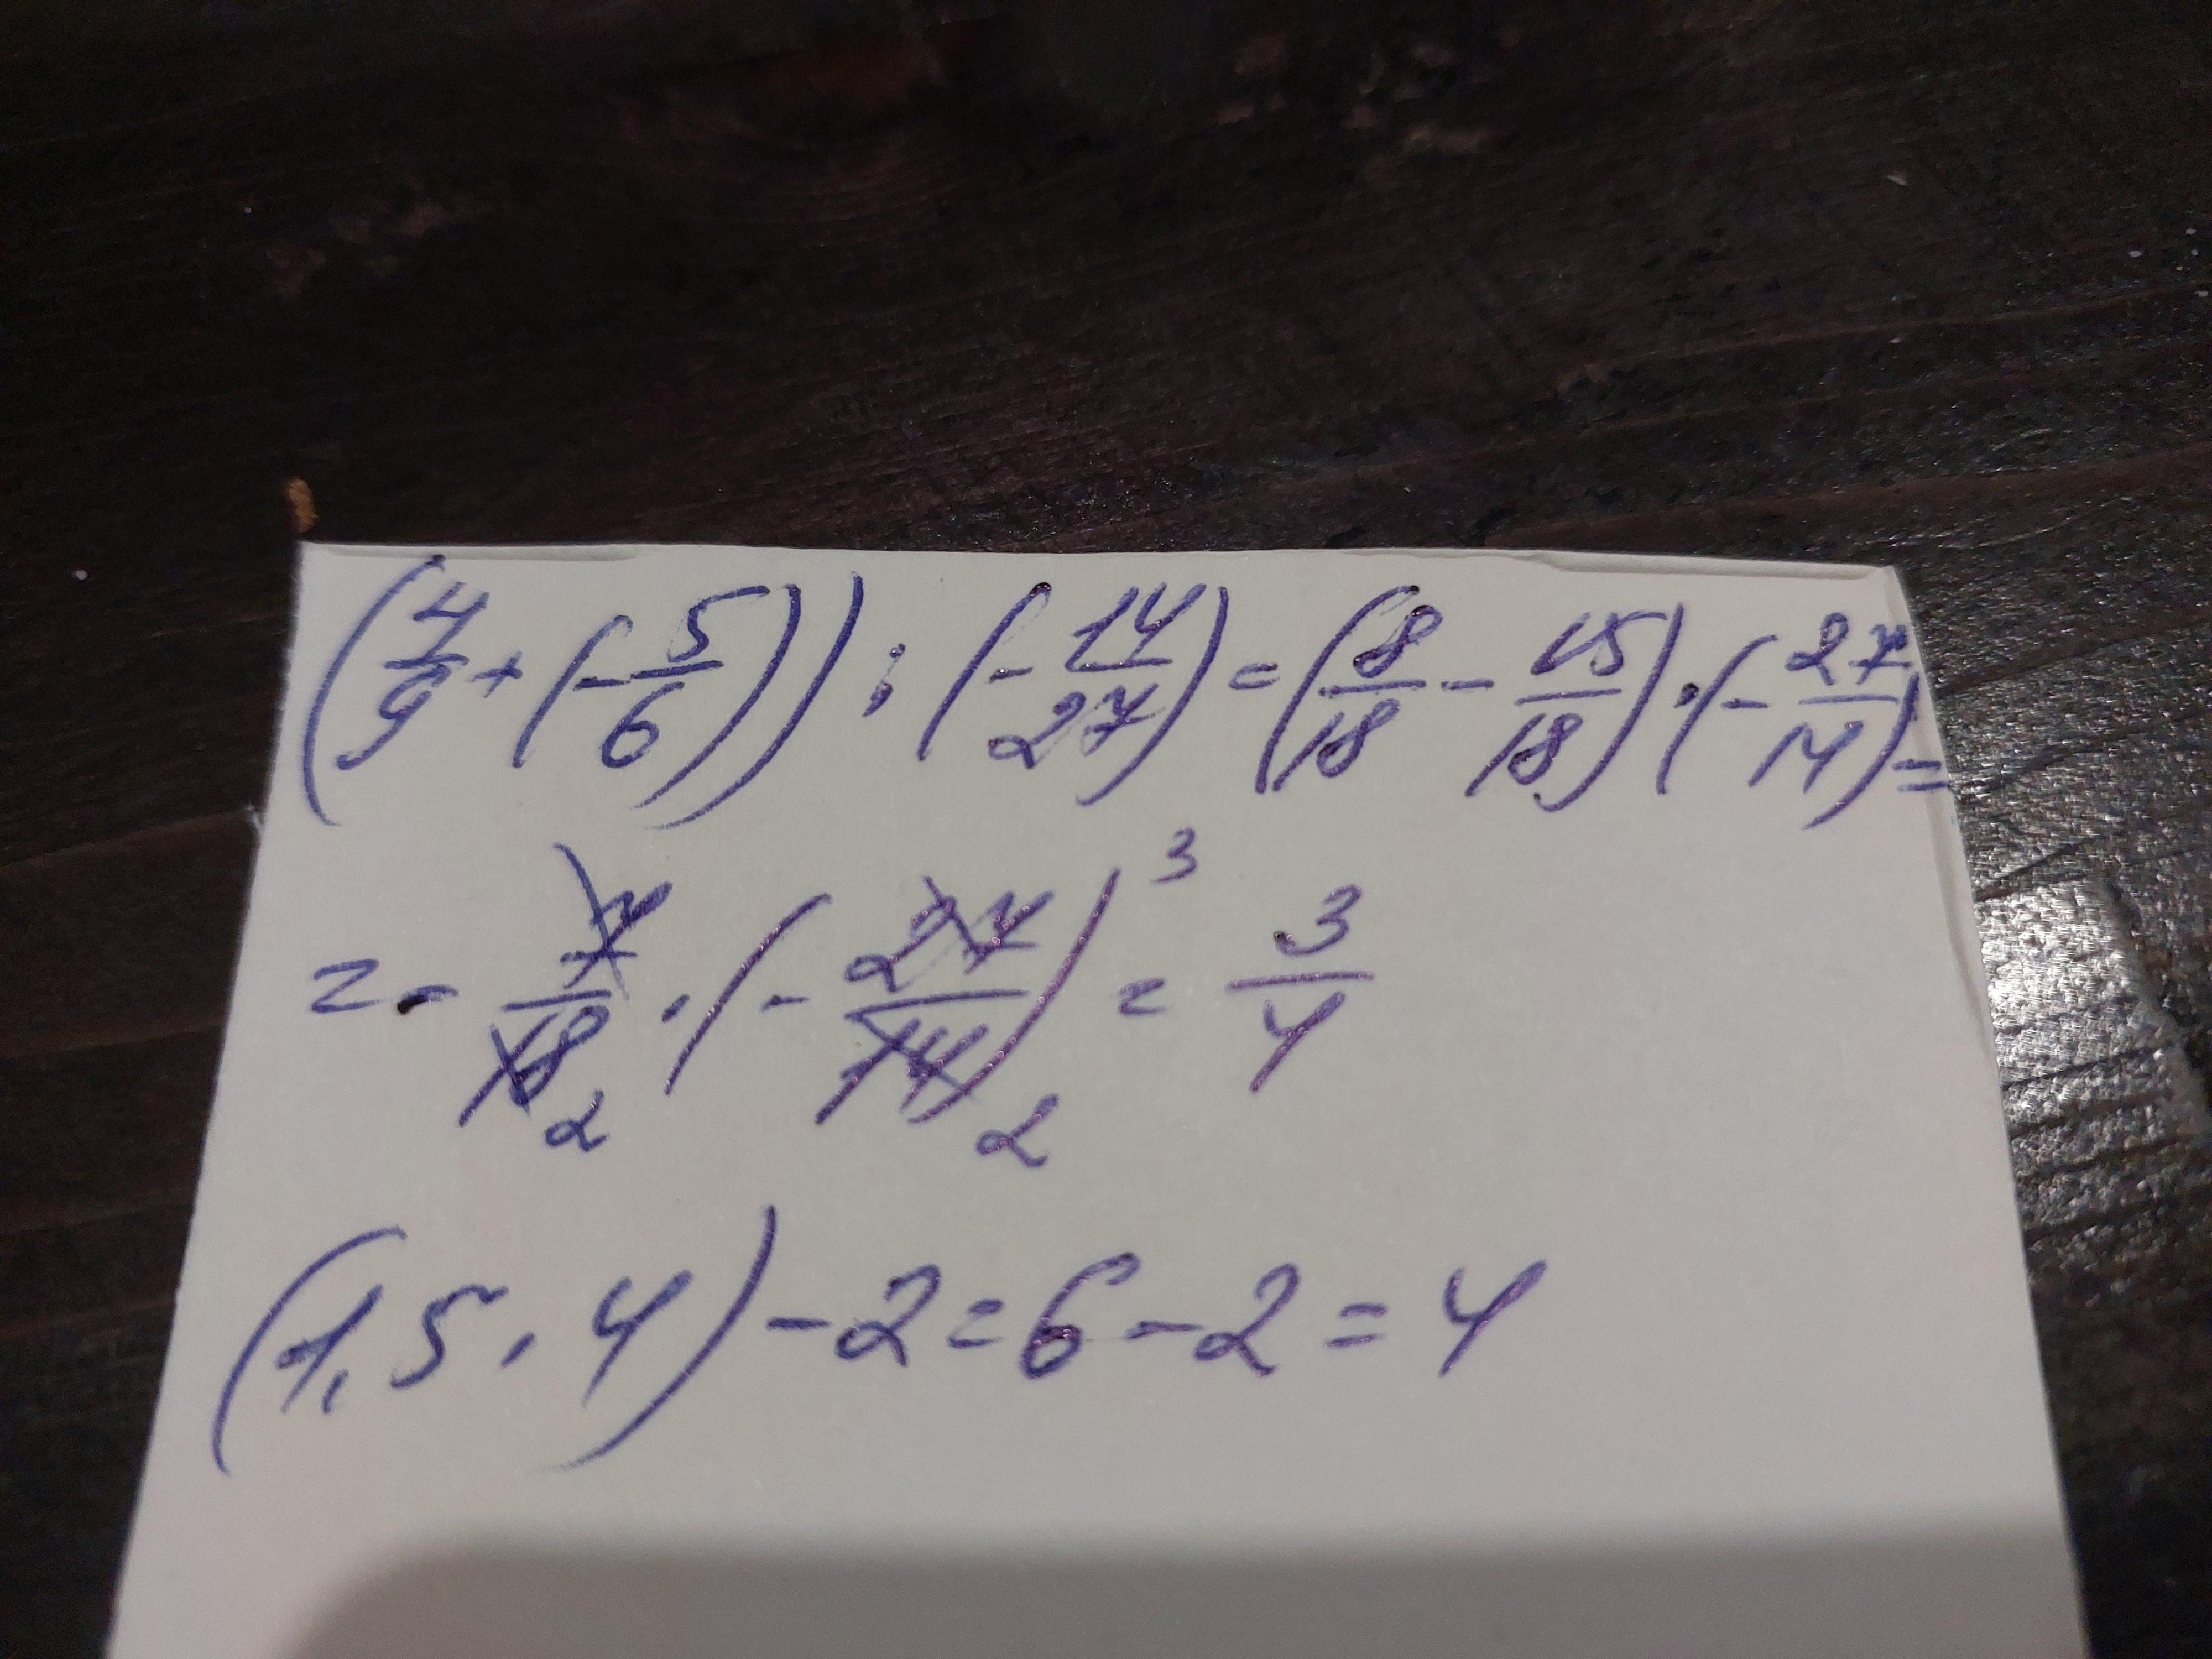 (4/9 + (-5/6)) : (-14/27) = (8/18 - 15/18) · (-27/14) =
= - 7/18 2 · (-27/14) 3 2 = 3/4
(1,5 · 4) - 2 = 6 - 2 = 4